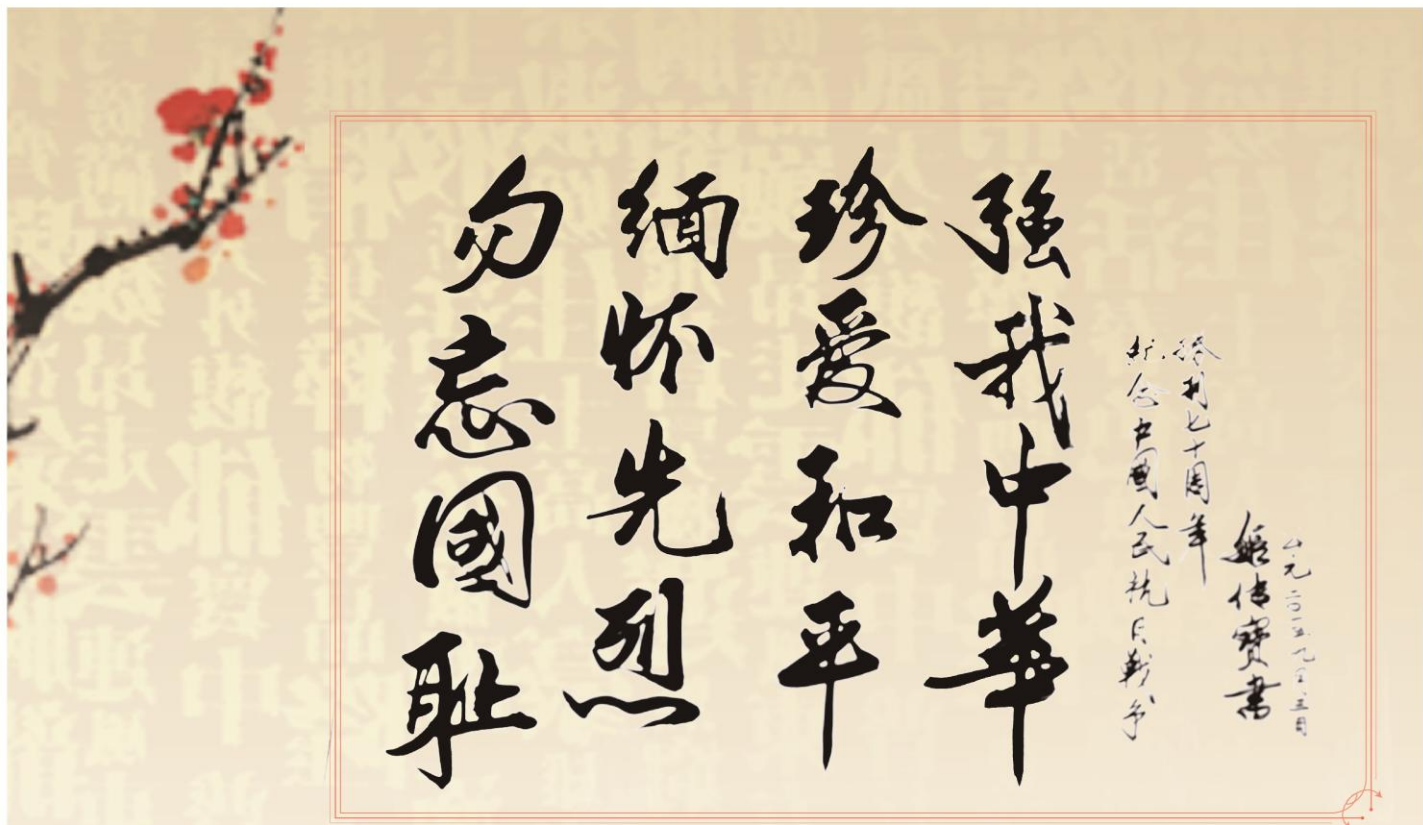 勿忘國耻
缅怀先烈
珍爱和平
強我中華
纪念中國人民抗日战争
胜利七十周年
寶書
公元二〇一五年九月三日